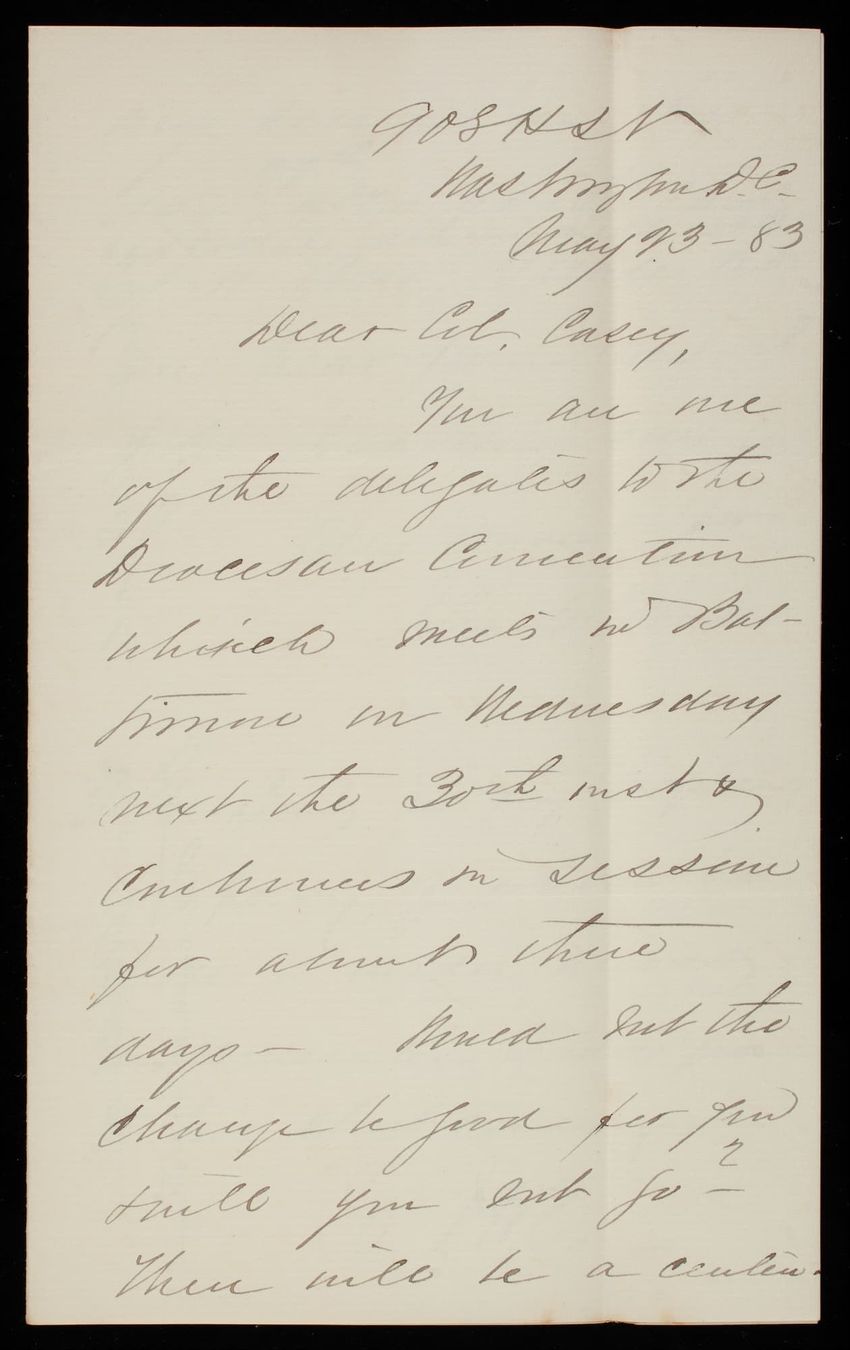 908 H St
Washington D.C.
May 23 - 83
Dear Col. Casey,
You are one
of the delegates to the
Diocesan Convention
which meets in Bal-
timore on Wednesday
next the 30th inst &
Continues in session
for about three
days - Would not the
change be good for you
& will you not go?
There will be a centen-